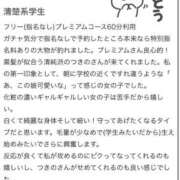 とう
清楚系学生
フリー(指名なし)プレミアムコース60分利用
ガチャ気分で指名なしで予約したところ本来なら特別指
名料ありの大物が釣れました。プレミアムさん良心的！
黒髪が似合う清純派のつきのさんが来てくれました。私
の第一印象として、朝に学校の近くですれ違うような「あ
あ、この娘可愛いな」って感じの女の子でした。
化粧の濃いギャルギャルしい女の子は苦手だから嬉し
い。
白くて綺麗な身体そして細い！守ってあげたくなるタイ
プだと思います。毛量が少なめで(学生みたいだから)生え
始めみたいでさらに興奮します。
反応が良くて私が攻めるのにビクってなってくれるのも
嬉しいし、つきのさんがせめてくれるのも良い感じでし
た。